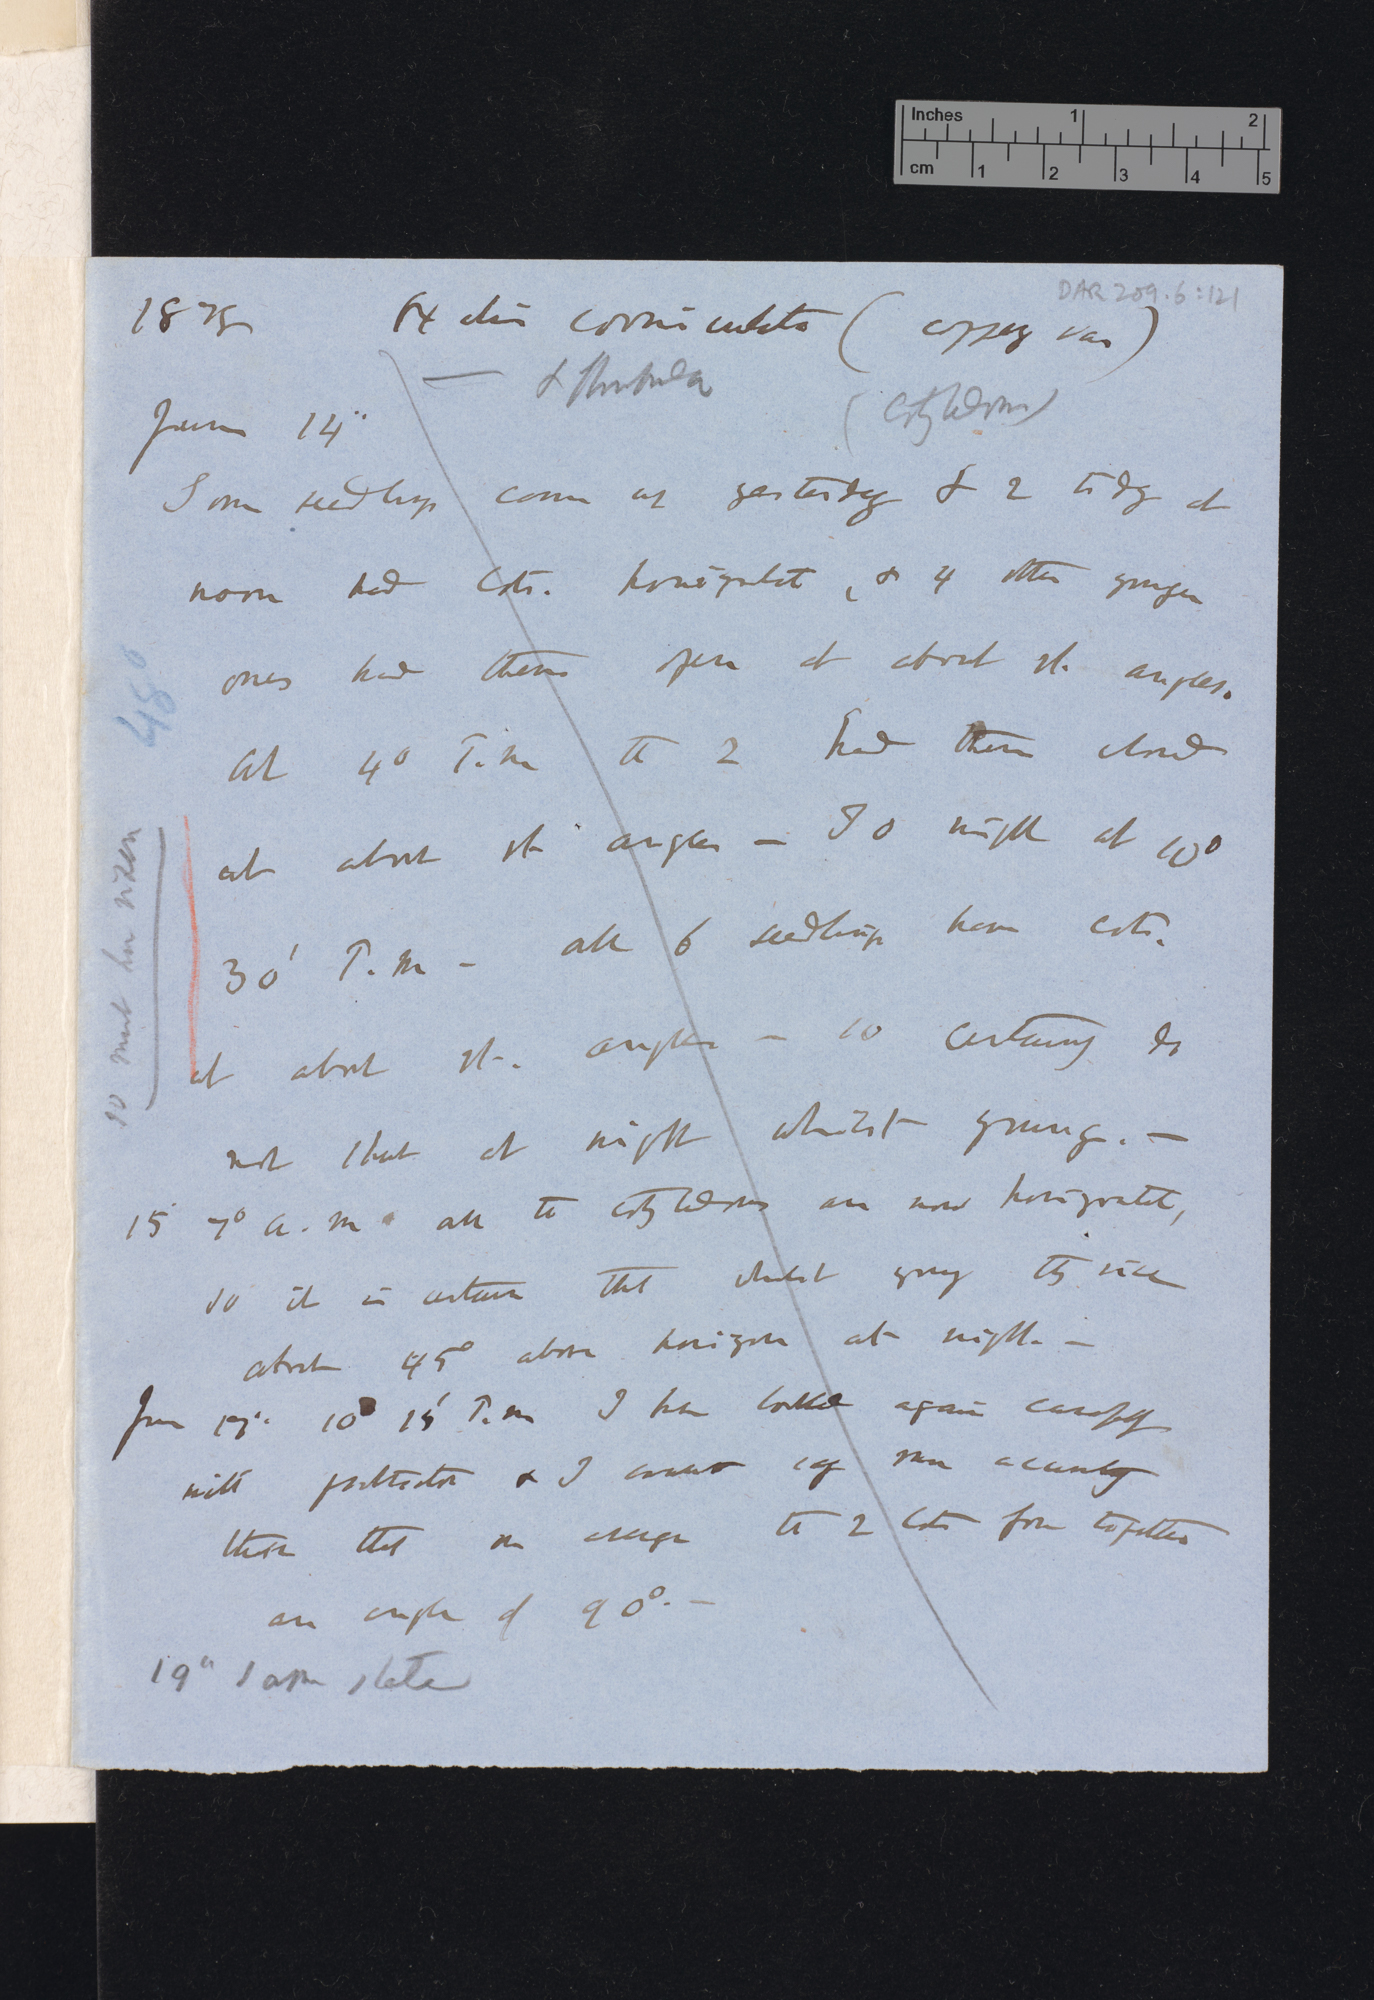 DAR 209.6:121
1878 Oxalis corniculata (coppery var)
— & floribunda
(Cotyledons)
June 14"
Some seedlings came up yesterday & 2 to dy at
noon had Cots. horizontal, & 4 other younger
ones had theirs open at about rt. angles.
At 4° P.m the 2 had them closed
at about rt angles — So night at 10°
30' P.m — all 6 seedlings have cots.
at about rt. angles — so certainly do
not shut at night whilst young. —
15 7° a.m. all the cotyledons are now horizontal,
so it is certain that whilst young they rise
about 45° above horizon at night. —
June 17" 10° 15' P.m I have looked again carefully
with protractor & I cannot say more accurately
than that on average the 2 Cots form together
an angle of 90°. —
19" Same state
48°
so must have risen